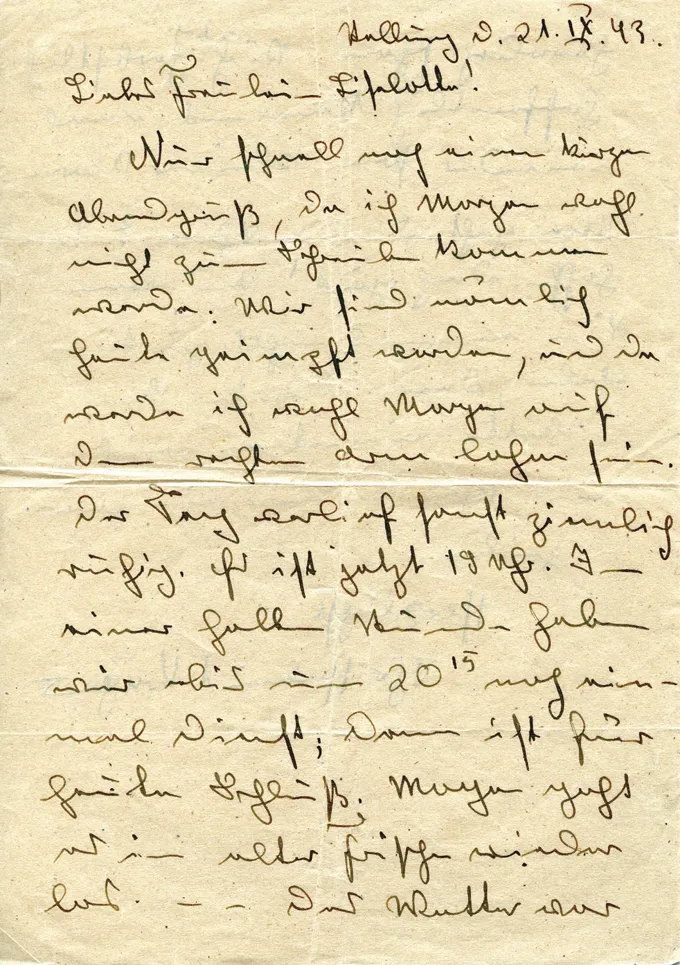 Kolling d. 21. IX. 43.
Liebes Fräulein Liselotte!
Nur schnell noch einen kurzen
Abendgruß, da ich Morgen wohl
nicht zum Schreiben kommen
werde. Wir sind nämlich
heute geimpft worden, und da
werde ich wohl Morgen auf
dem rechten Arm lahm sein.
Der Tag verlief sonst ziemlich
ruhig. Es ist jetzt 19 Uhr. In
einer halben Stunde haben
wir bis um 20 15 noch ein-
mal Dienst; dann ist für
heute Schluß. Morgen geht
es in alter Frische wieder
los. - - Das Wetter war